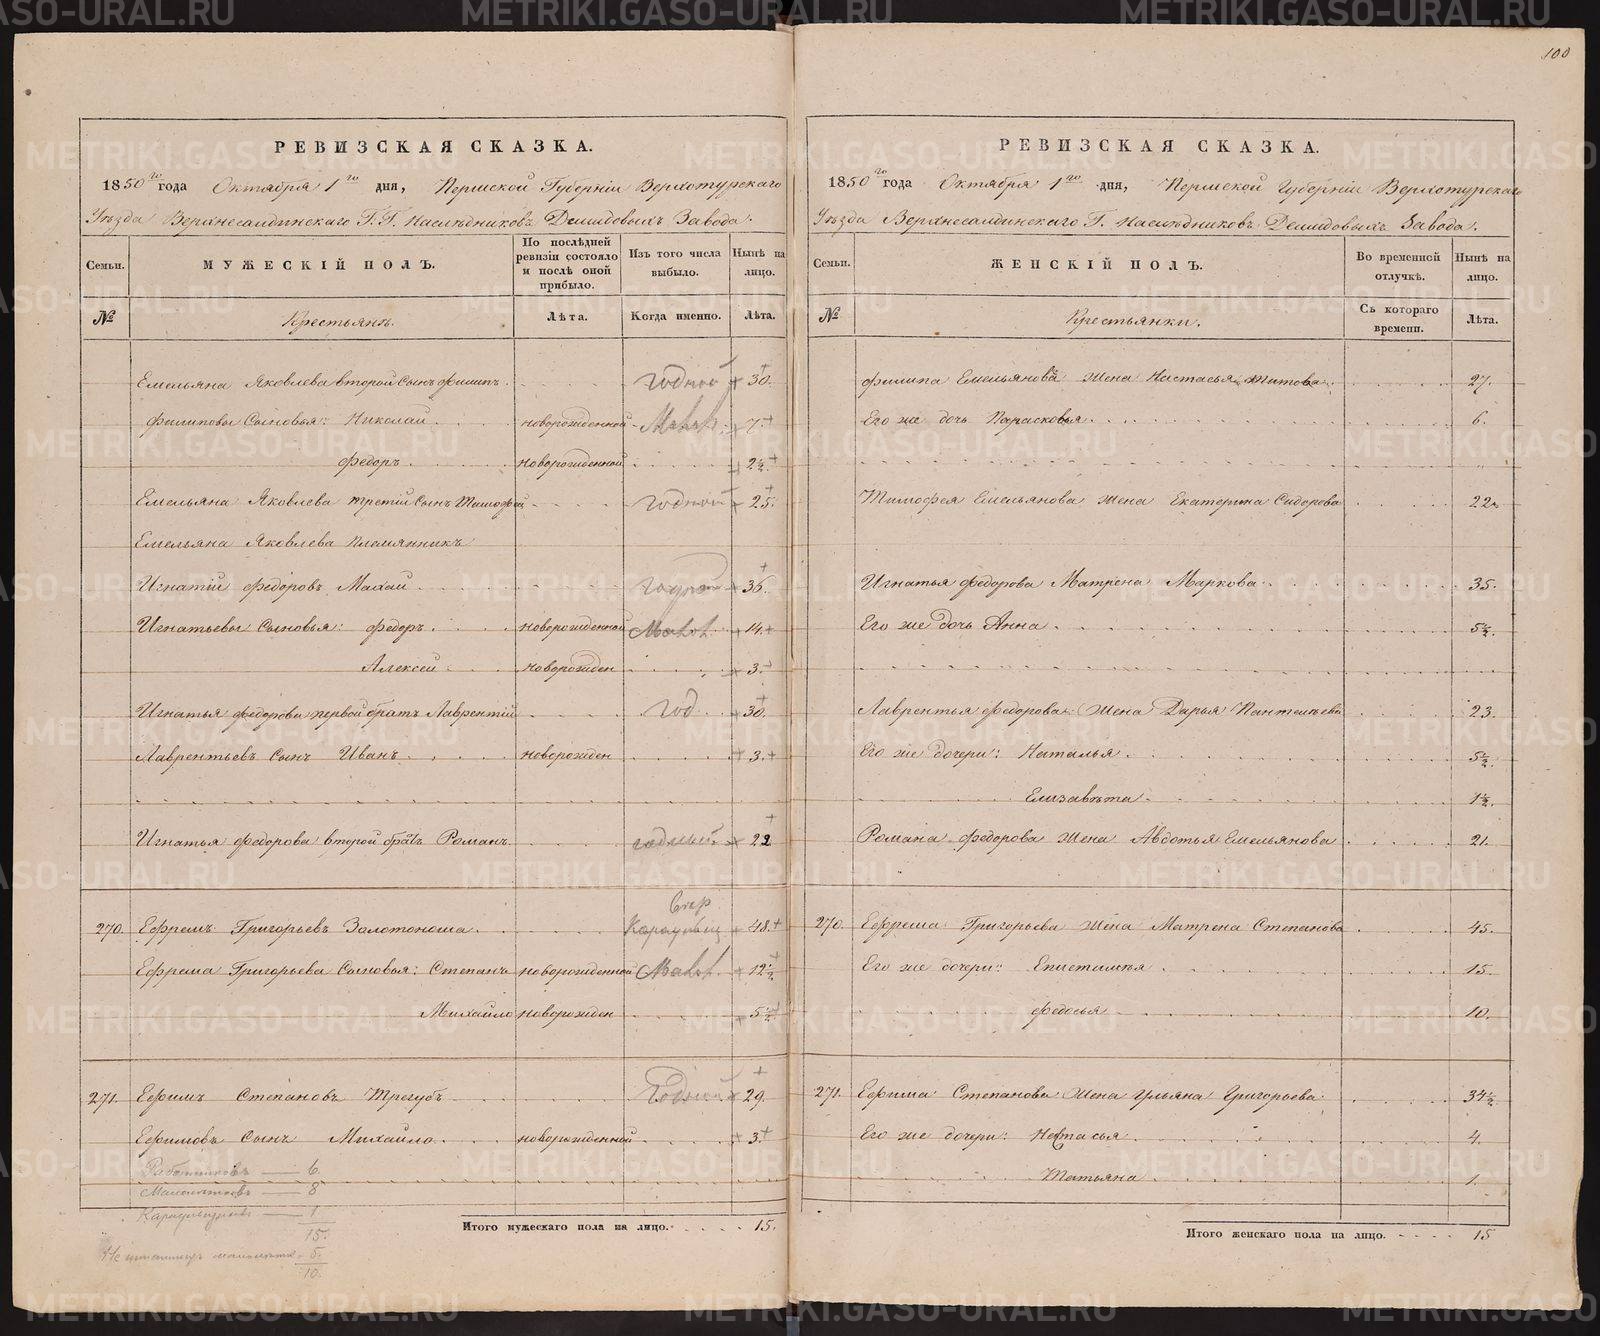 100
РЕВИЗСКАЯ СКАЗКА.
1850го года Октября 1го дня, Пермской Губерніи Верхотурскаго
Уѣзда Верхнесалдинскаго Г.Г. Наслѣдниковъ Демидовыхъ Завода.
Семьи.
МУЖЕСКІЙ ПОЛЪ.
По послѣдней ревизіи состояло и послѣ оной прибыло.
Изъ того числа выбыло.
Нынѣ на лицо.
№
Крестьянъ.
Лѣта.
Когда именно.
Лѣта.
Емельяна Яковлева второй сынъ Филипъ годной 30.
Филиповы Сыновья: Николай новорожденной Малол. 7.
Федоръ новорожденной 2½
Емельяна Яковлева третій сынъ Тимофей годной 25.
Емельяна Яковлева племянникъ
Игнатій Федоровъ Махай годной 36.
Игнатьевы Сыновья: Федоръ новорожденной Малол. 14.
Алексей новорожден 3.
Игнатья Федорова первой братъ Лаврентій год 30.
Лаврентьевъ сынъ Иванъ новорожден 3.
Игнатья Федорова второй братъ Романъ годный 22
270. Ефремъ Григорьевъ Золотоноша 48.
Ефрема Григорьева Сыновья: Степанъ новорожденной Малол. 12½
Михайло новорожден 5½
271. Ефимъ Степановъ Трегубъ Годной 29.
Ефимовъ Сынъ Михайло новорожденной 3.
Работниковъ — 6.
Малолѣтковъ — 8
Караульщиковъ — 1
15.
5.
10.
Итого мужескаго пола на лицо. 15.
РЕВИЗСКАЯ СКАЗКА.
1850го года Октября 1го дня, Пермской Губерніи Верхотурскаго
Уѣзда Верхнесалдинскаго Г. Наслѣдниковъ Демидовыхъ Завода.
Семьи.
ЖЕНСКІЙ ПОЛЪ.
Во временной отлучкѣ.
Нынѣ на лицо.
№
Крестьянки.
Съ котораго времени.
Лѣта.
Филипа Емельянова жена Настасья Титова 27.
Его же дочь Парасковья 6.
Тимофея Емельянова жена Екатерина Сидорова 22.
Игнатья Федорова Матрена Маркова 35.
Его же дочь Анна 5½.
Лаврентья Федорова жена Дарья Пантелѣева 23.
Его же дочери: Наталья 5½.
Елизавѣта 1½.
Романа Федорова жена Авдотья Емельянова 21.
270. Ефрема Григорьева жена Матрена Степанова 45.
Его же дочери: Епистимѣя 15.
Федосья 10.
271. Ефима Степанова жена Ульяна Григорьева 34½
Его же дочери: Настасья 4.
Татьяна 1.
Итого женскаго пола на лицо. 15
METRIKI.GASO-URAL.RU